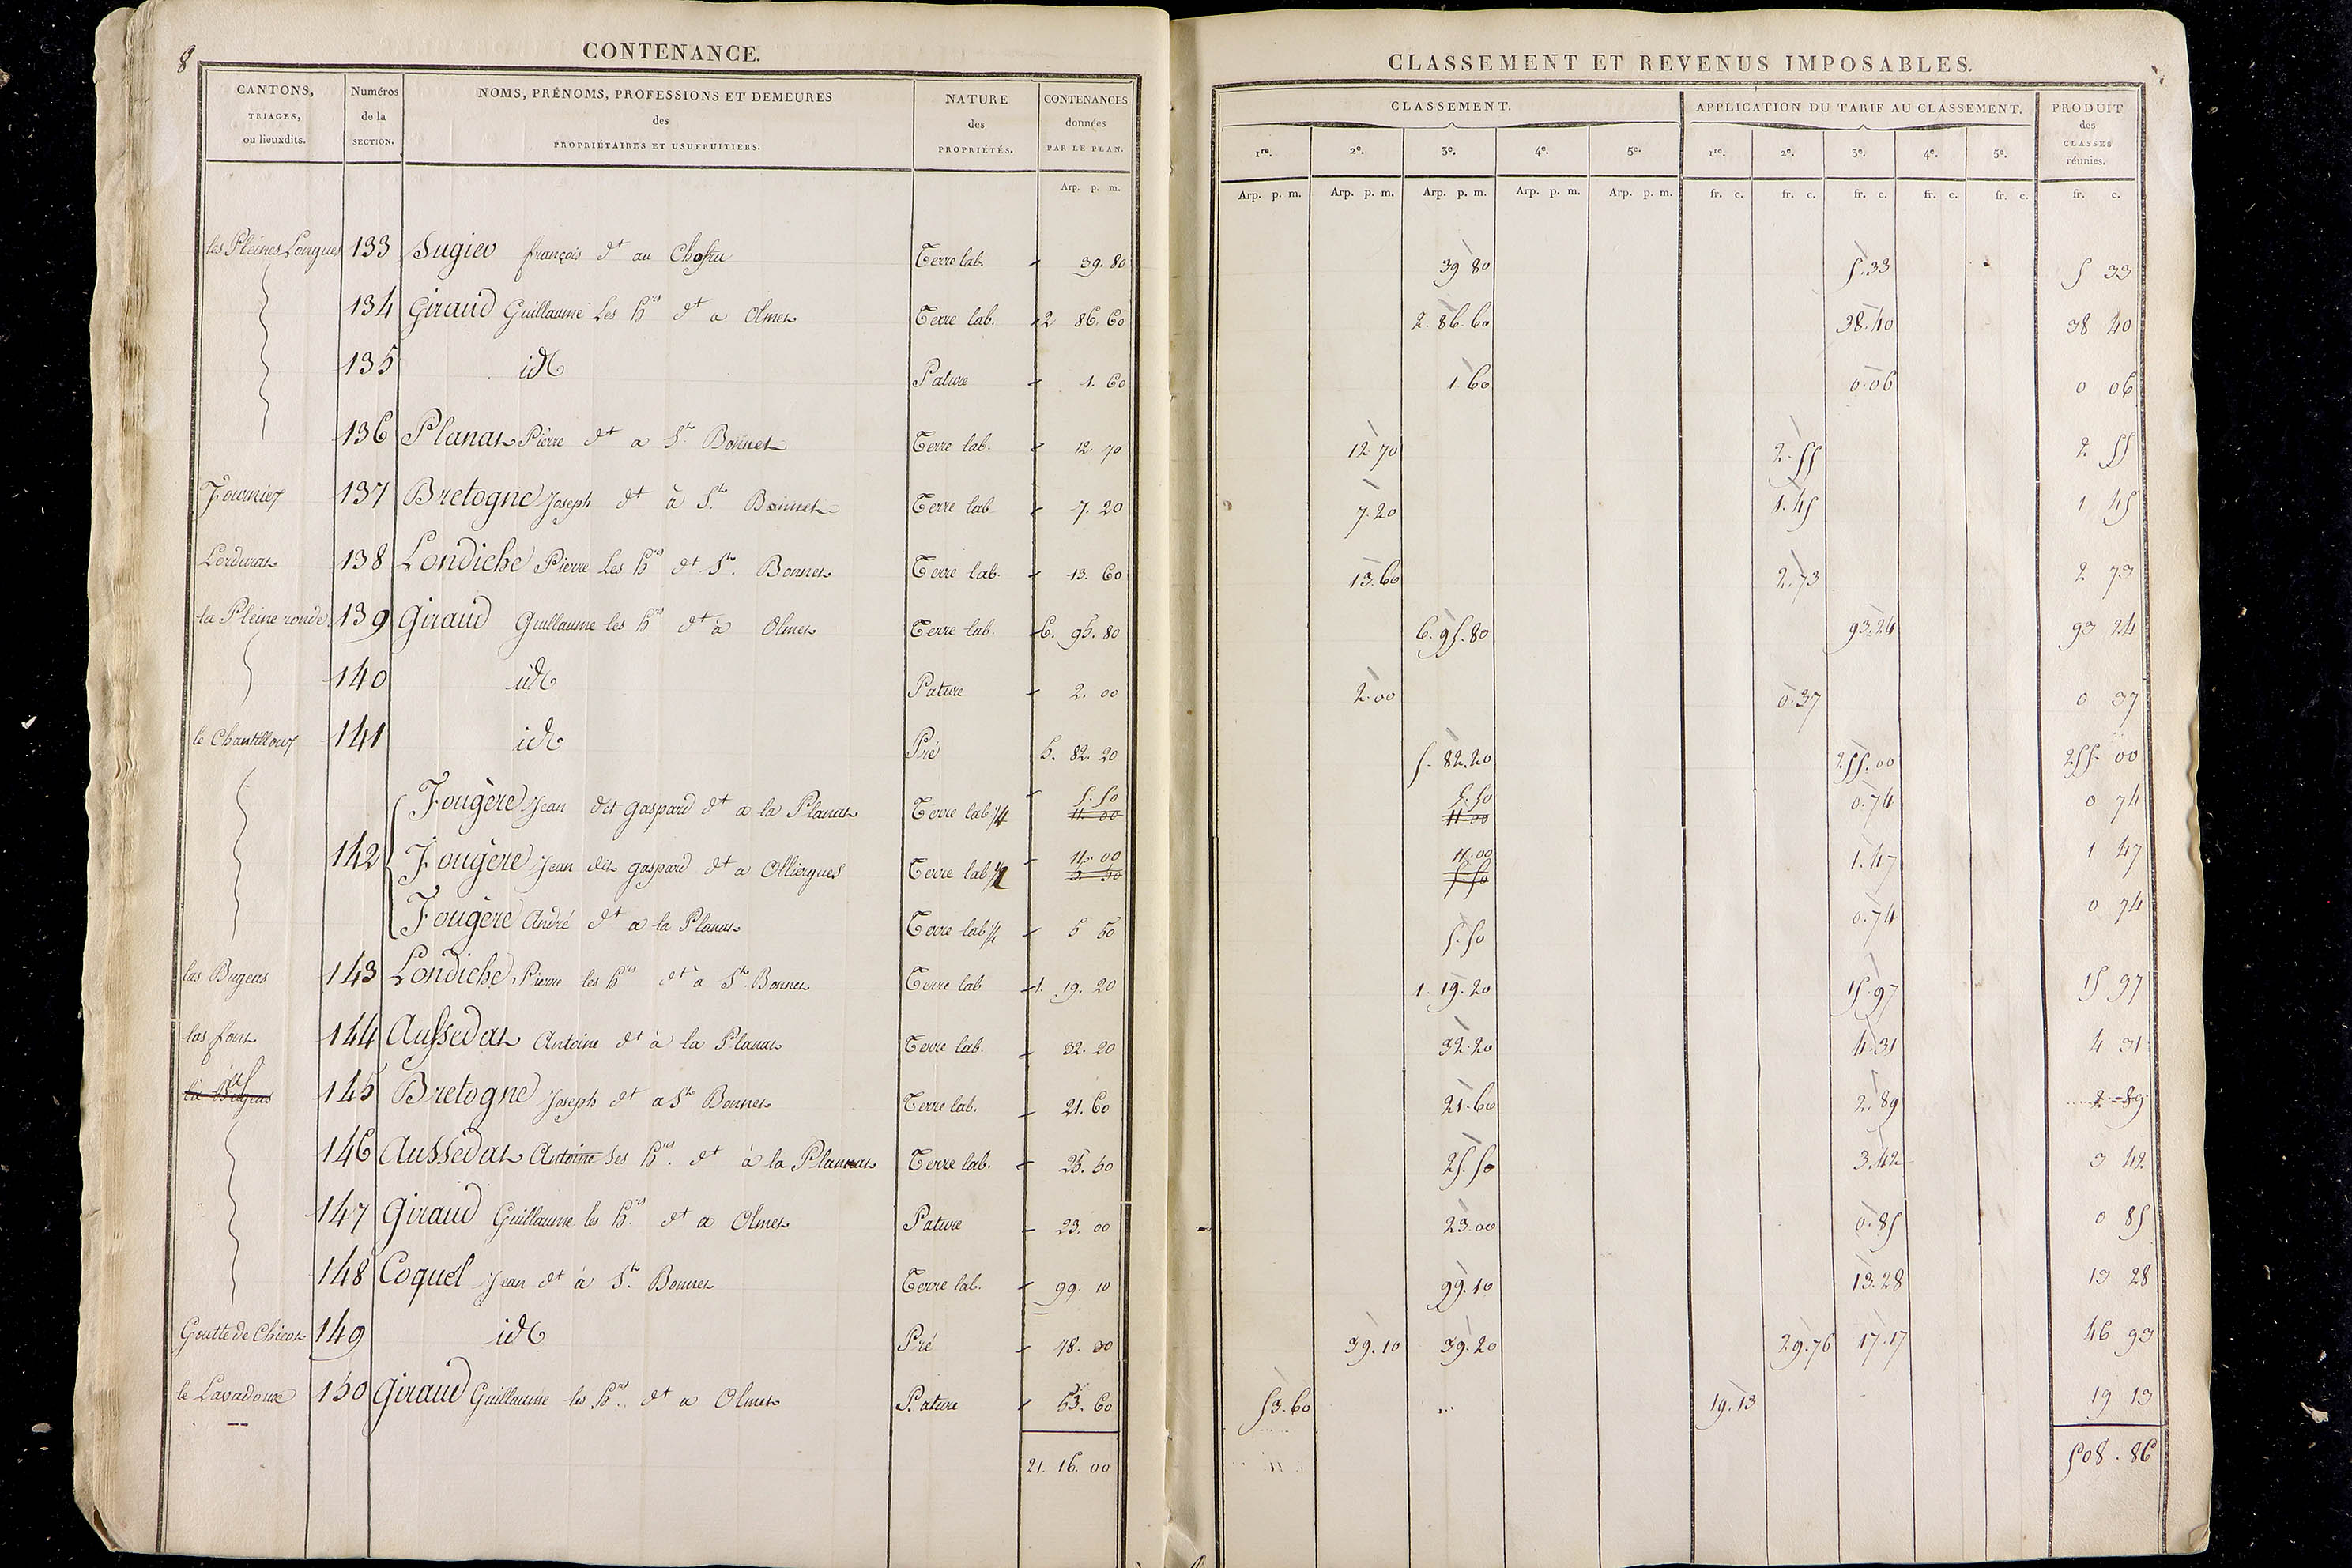 8
CONTENANCE.
CANTONS, TRIAGES, ou lieuxdits.
Numéros de la SECTION.
NOMS, PRÉNOMS, PROFESSIONS ET DEMEURES des PROPRIÉTAIRES ET USUFRUITIERS.
NATURE des PROPRIÉTÉS.
CONTENANCES données PAR LE PLAN.
Arp. p. m.
les Pleines Longues 133 François dt au Terre lab. 39. 80
134 Giraud Guillaume Les hrs dt a Olmet Terre lab. 2 86. 60
135 id Pature 1. 60
136 Planat Pierre dt a St Bonnet Terre lab. 12. 70
Fournier 137 Bretogne Joseph dt à St. Bonnet Terre lab 7. 20
138 Londiche Pierre Les hrs dt St. Bonnet Terre lab. 13. 60
la Pleine ronde 139 Giraud Guillaume les hrs dt à Olmet Terre lab. 6. 95. 80
140 id Pature 2. 00
141 id Pré 5. 82. 20
142 Fougère Jean dit gaspard dt a la Planat Terre lab. 1/4 5. 50 11. 00
Fougère Jean dit gaspard dt a Olliergues Terre lab 1/2 11. 00 5. 50
Fougère André dt a la Planat Terre lab 1/4 5 50
las Bugeas 143 Londiche Pierre les hrs dt à St. Bonnet Terre lab 1. 19. 20
las font 144 Aussedat Antoine dt à la Planat Terre lab. 32. 20
145 Bretogne Joseph dt a St Bonnet Terre lab. 21. 60
146 Aussedat Antoine les hrs. dt à la Planat Terre lab. 25. 50
147 Giraud Guillaume les hrs. dt a Olmet Pature 23. 00
148 Coquel Jean dt à St. Bonnet Terre lab. 99. 10
Goutte de Chicot 149 id Pré 78. 30
le Lavadoux 150 Giraud Guillaume les hrs. dt a Olmet Pature 53. 60
21. 16. 00
CLASSEMENT ET REVENUS IMPOSABLES.
CLASSEMENT.
APPLICATION DU TARIF AU CLASSEMENT.
PRODUIT des CLASSES réunies.
1re. 2e. 3e. 4e. 5e. 1re. 2e. 3e. 4e. 5e.
Arp. p. m. Arp. p. m. Arp. p. m. Arp. p. m. Arp. p. m. fr. c. fr. c. fr. c. fr. c. fr. c. fr. c.
39 80 5.33 5 33
2. 86. 60 38.40 38 40
1. 60 0.06 0 06
12 70 2.55 2 55
7.20 1.45 1 45
13.60 2.73 2 73
6. 95. 80 93.24 93 24
2.00 0.37 0 37
5. 82.20 255.00 255. 00
5.50 11.00 0.74 0 74
11.00 5.50 1.47 1 47
5.50 0.74 0 74
1. 19.20 15.97 15 97
32.20 4.31 4 31
21.60 2.89 2 89
25.50 3.42 3 42
23.00 0.85 0 85
99.10 13.28 13 28
39.10 39.20 29.76 17.17 46 93
53.60 19.13 19 13
508. 86